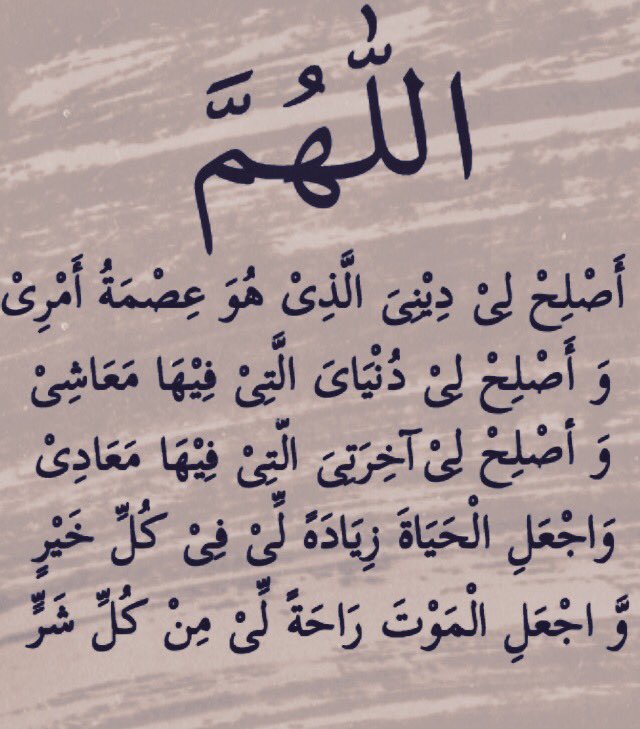 اللّٰهُمَّ
أَصْلِحْ لِىْ دِيْنِىَ الَّذِىْ هُوَ عِصْمَةُ أَمْرِىْ
وَ أَصْلِحْ لِىْ دُنْيَاىَ الَّتِىْ فِيْهَا مَعَاشِىْ
وَ أصْلِحْ لِىْ آخِرَتِىَ الَّتِىْ فِيْهَا مَعَادِىْ
وَاجْعَلِ الْحَيَاةَ زِيَادَةً لِّىْ فِىْ كُلِّ خَيْرٍ
وَّ اجْعَلِ الْمَوْتَ رَاحَةً لِّىْ مِنْ كُلِّ شَرٍّ